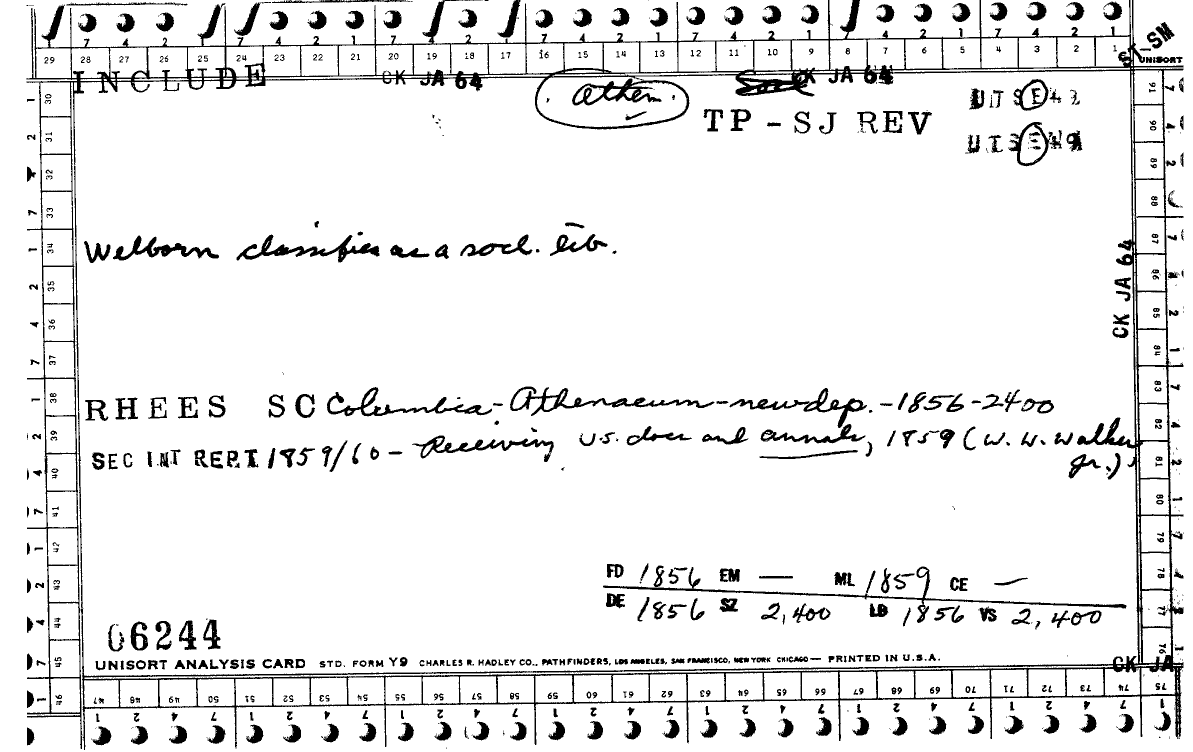 7 4 2 1 7 4 2 1 7 4 2 1 7 4 2 1 7 4 2 1 7 4 2 1
29 28 27 26 25 24 23 22 21 20 19 18 17 16 15 14 13 12 11 10 9 8 7 6 5 4 3 2 1
ST-SM
UNISORT
INCLUDE CK JA 64 Athen. CK JA 64
TP-SJ REV
Welborn classifies as a socl. lib.
CK JA 64
RHEES SC Columbia-Athenaeum-newdep.-1856-2400
SEC INT REPT 1859/60 - Receiving U.S. docs and annals, 1859 (W. W. Walker
Jr.)
FD 1856 EM — ML 1859 CE —
DE 1856 SZ 2,400 LB 1856 VS 2,400
06244
UNISORT ANALYSIS CARD STD. FORM Y9 CHARLES R. HADLEY CO., PATHFINDERS, LOS ANGELES, SAN FRANCISCO, NEW YORK CHICAGO — PRINTED IN U.S.A.
CK JA
30 31 32 33 34 35 36 37 38 39 40 41 42 43 44 45 46
91 90 89 88 87 86 85 84 83 82 81 80 79 78 77 76
47 48 49 50 51 52 53 54 55 56 57 58 59 60 61 62 63 64 65 66 67 68 69 70 71 72 73 74 75
1 2 4 7 1 2 4 7 1 2 4 7 1 2 4 7 1 2 4 7 1 2 4 7 1 2 4 7 1